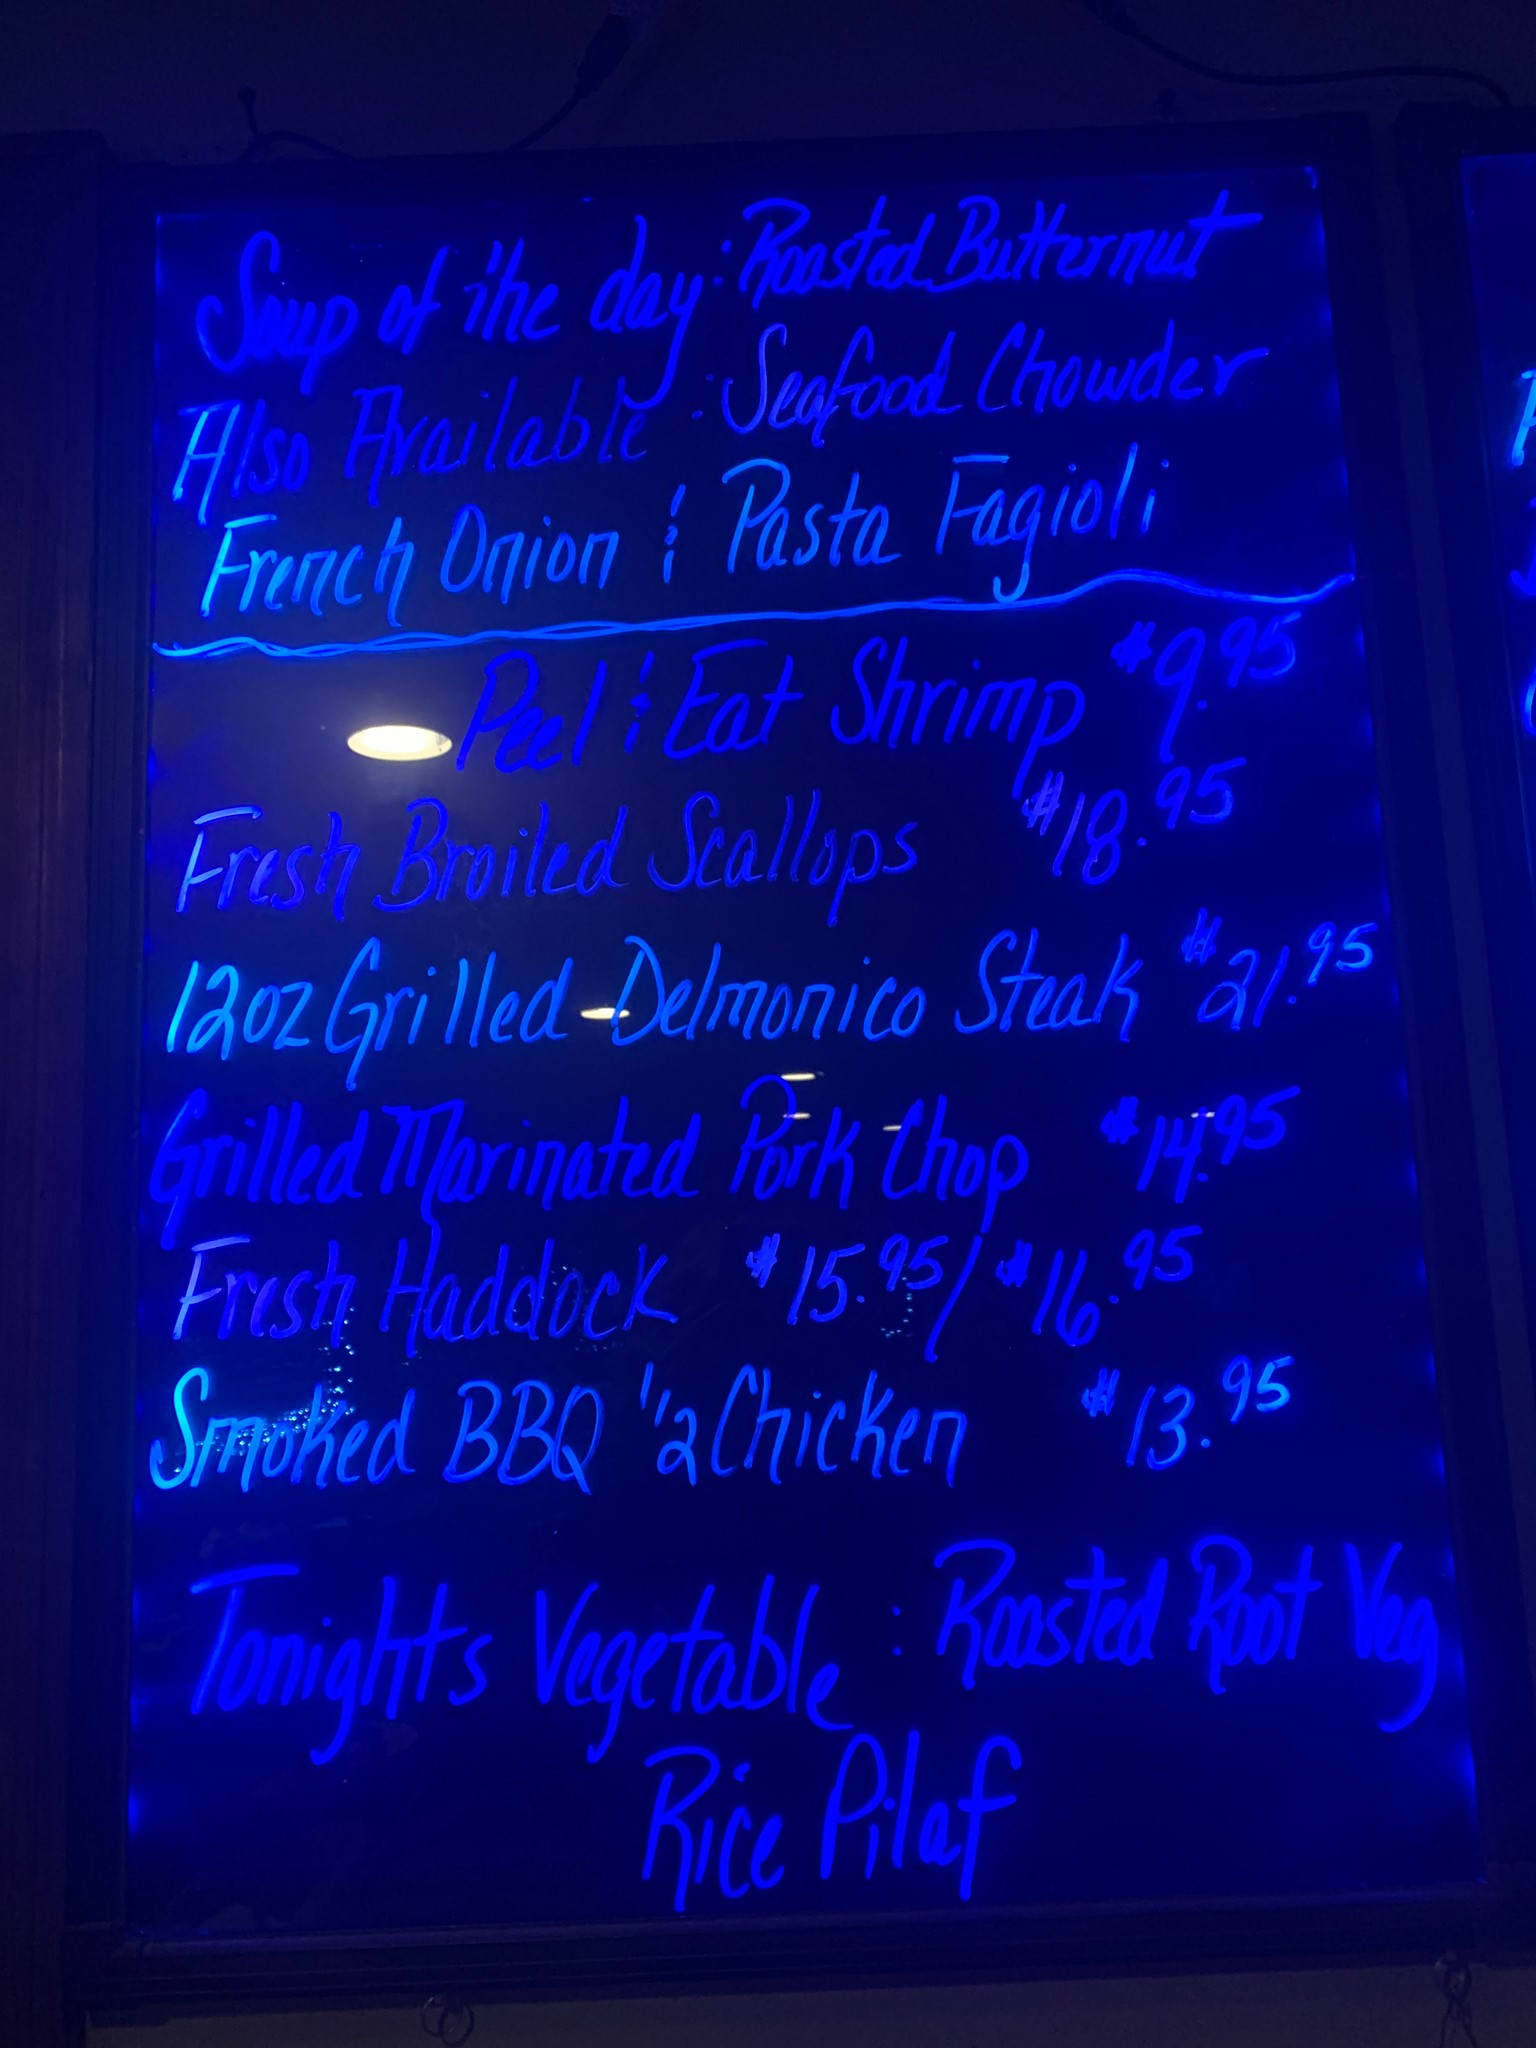 Soup of the day: Roasted Butternut
Also Available: Seafood Chowder
French Onion & Pasta Fagioli
Peel & Eat Shrimp $9.95
Fresh Broiled Scallops $18.95
12oz Grilled Delmonico Steak $21.95
Grilled Marinated Pork Chop $14.95
Fresh Haddock $15.95/$16.95
Smoked BBQ 1/2 Chicken $13.95
Tonights Vegetable: Roasted Root Veg
Rice Pilaf